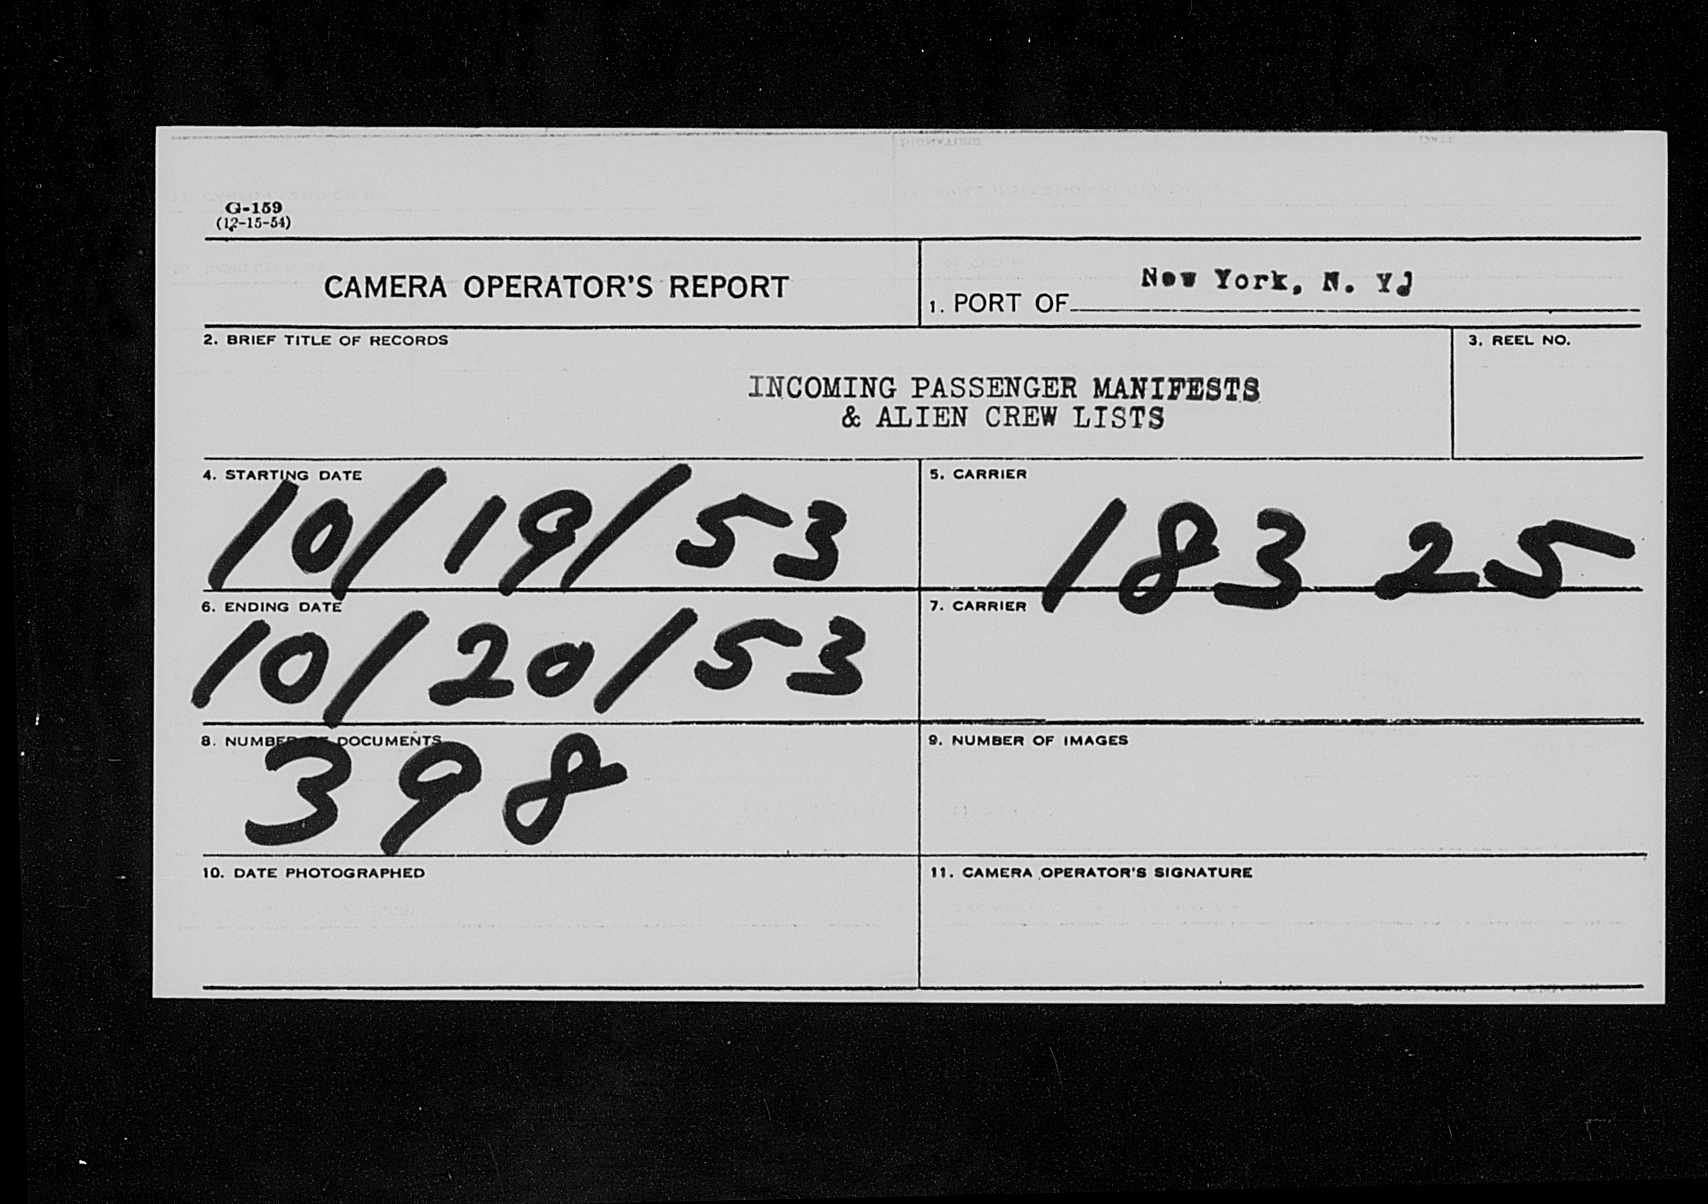 G-159
(12-15-54)
CAMERA OPERATOR'S REPORT
1. PORT OF New York, N. Y.
2. BRIEF TITLE OF RECORDS
INCOMING PASSENGER MANIFESTS
& ALIEN CREW LISTS
3. REEL NO.
4. STARTING DATE
10/19/53
5. CARRIER
183 25
6. ENDING DATE
10/20/53
7. CARRIER
8. NUMBER OF DOCUMENTS
398
9. NUMBER OF IMAGES
10. DATE PHOTOGRAPHED
11. CAMERA OPERATOR'S SIGNATURE